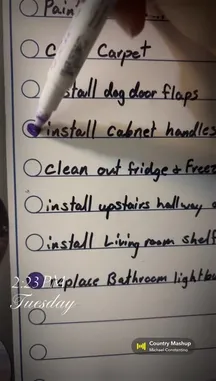 Pain
Carpet
install dog door flaps
install cabnet handles
clean out fridge + Freez
install upstairs hallway
install Living room shelf
replace Bathroom lightbu
2:23 PM
Tuesday
Country Mashup
Michael Constantino